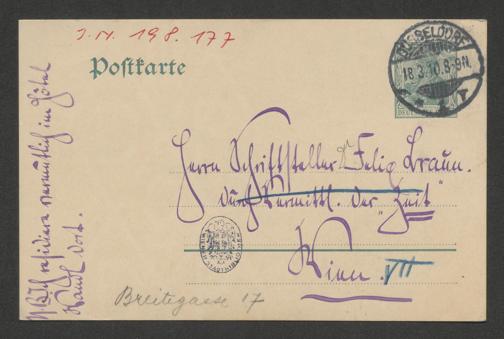 J. N. 198.177
Postkarte
DÜSSELDORF
18.3.10.8-9N.
Herrn Schriftsteller Dr Felix Braun.
Durch Vermittl. der "Zeit"
Wien VII
Breitegasse 17
residiere vermutlich im Hôtel
dort.